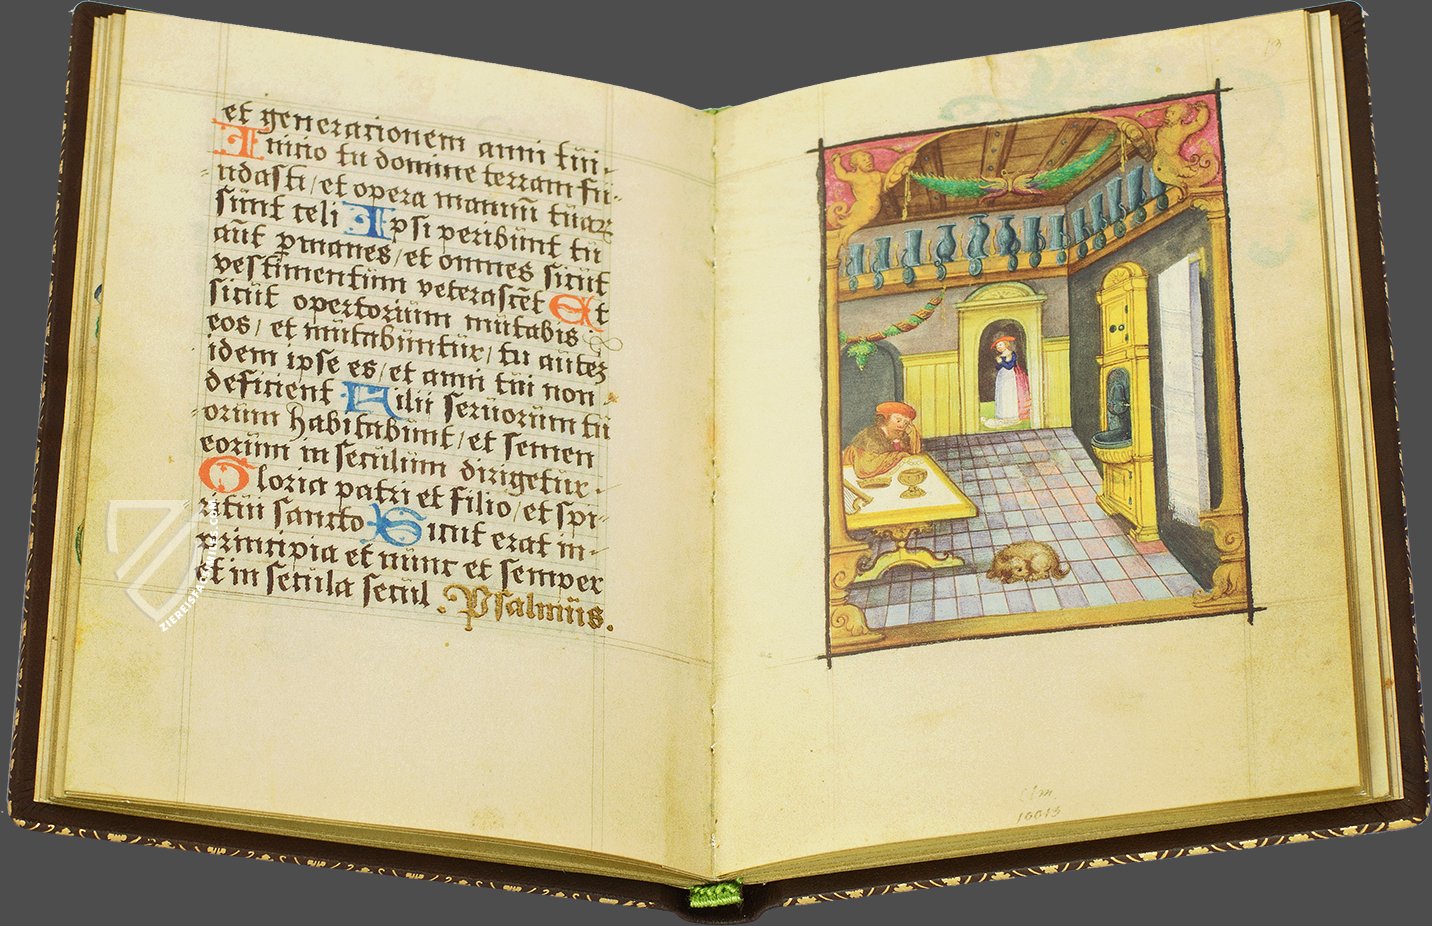 et generationem anni tui.
Inicio tu domine terram fu-
ndasti/et opera manuū tuaꝝ
sunt celi Ipsi peribunt tu
aut ꝑmanes/et omnes sicut
vestimentum veterascēt Et
sicut opertorium mutabis
eos/et mutabuntur/tu autēz
idem ipse es/et anni tui non
deficient Filii seruorum tu
orum habitabunt/et semen
eorum in seculum dirigetur.
Gloria patri et filio/et spi-
ritui sancto Sicut erat in-
principia et nunc et semper
et in secula secul. Psalmus.
ZIEREIS FACSIMILES.COM
13
Clm
10013